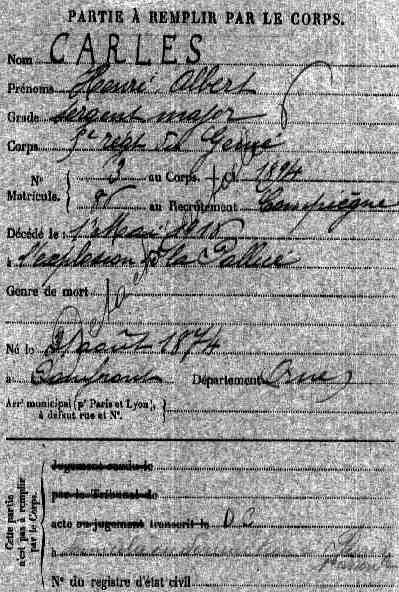 PARTIE À REMPLIR PAR LE CORPS.
Nom CARLES
Prénoms Henri Albert
Grade Sergent major
Corps regt du Génie
Nº au Corps. 1894
Matricule. au Recrutement Compiègne
Décédé le 1er Mai 1916
à l'explosion de la Pallice
Genre de mort
Né le août 1874
à Département Orne
Arrt municipal (pr Paris et Lyon),
à défaut rue et Nº.
Cette partie
n'est pas à remplir
par le Corps.
Jugement rendu le
par le Tribunal de
acte ou jugement transcrit le D C
à
Nº du registre d'état civil